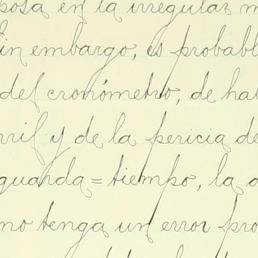 posa en la irregular m
in embargo, es probabl
del cronómetro, de ha
rril y de la pericia de
guarda=tiempo, la
mo tenga un error pro